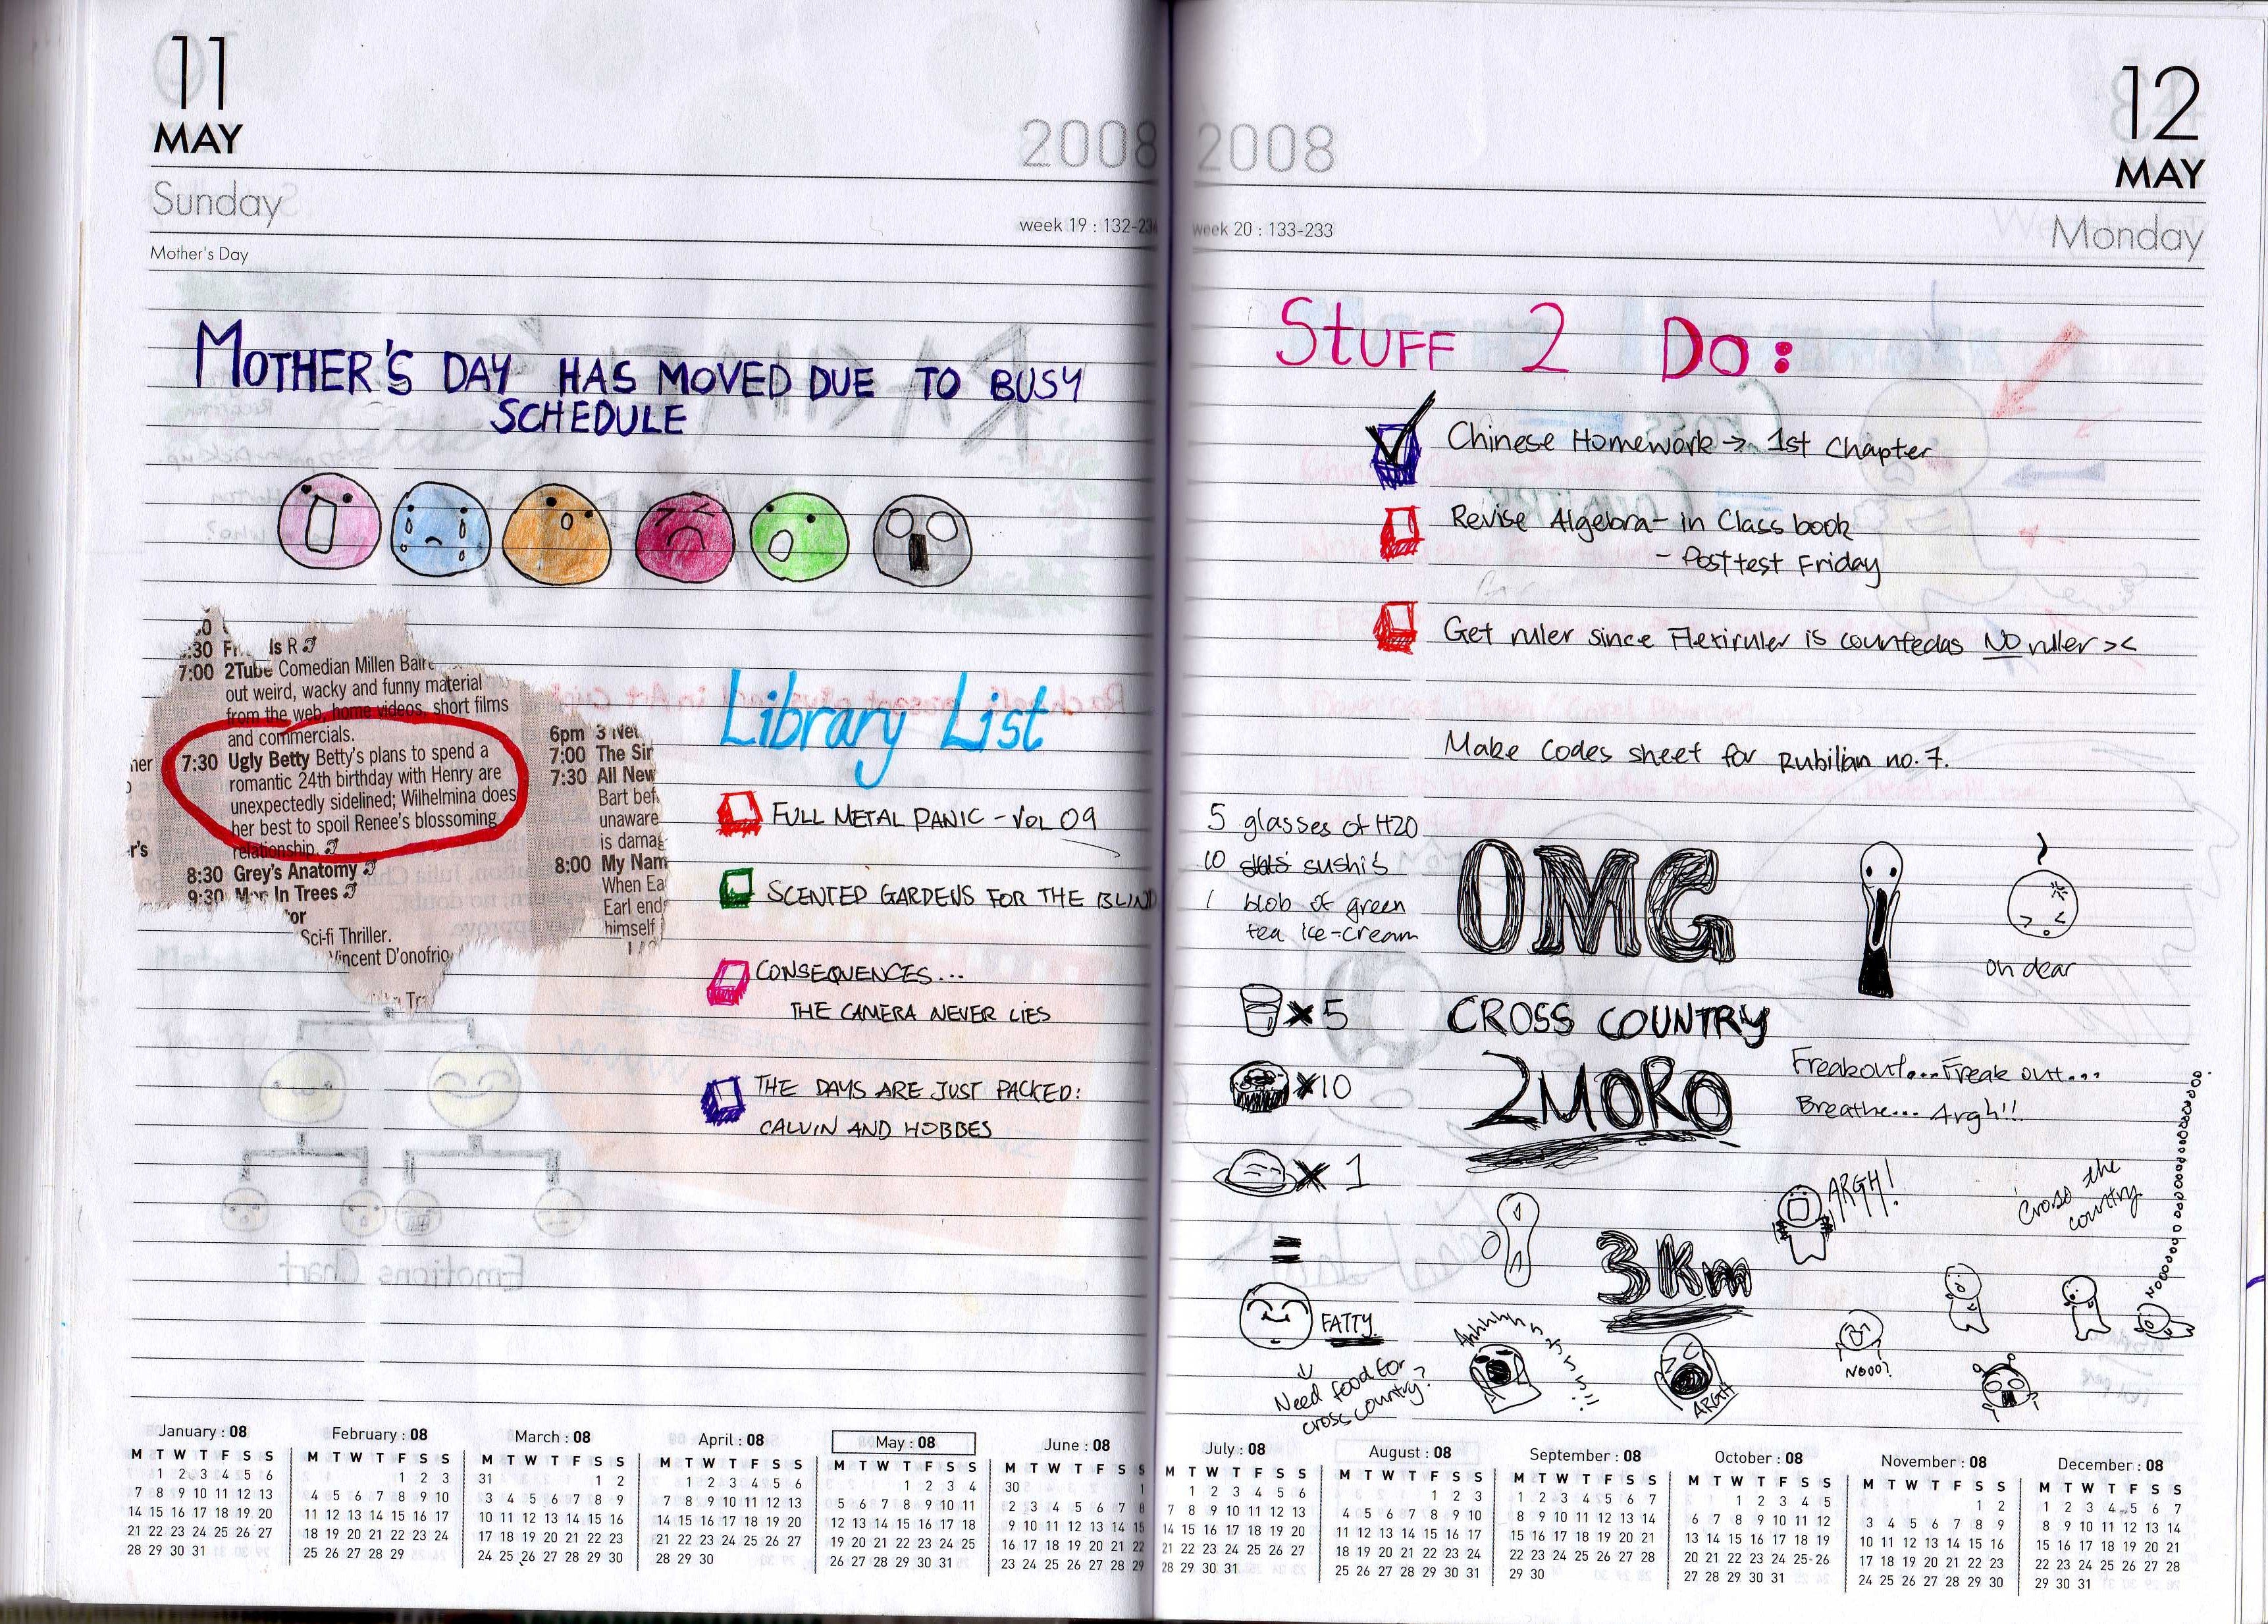 11
MAY
2008
Sunday
week 19 : 132-234
Mother's Day
MOTHER'S DAY HAS MOVED DUE TO BUSY
SCHEDULE
:30 Is R
7:00 2Tube Comedian Millen Baird
out weird, wacky and funny material
from the web, home videos, short films
and commercials.
7:30 Ugly Betty Betty's plans to spend a
romantic 24th birthday with Henry are
unexpectedly sidelined; Wilhelmina does
her best to spoil Renee's blossoming
relationship.
8:30 Grey's Anatomy
9:30 In Trees
Sci-fi Thriller.
Vincent D'onofrio
6pm 3 Net
7:00 The Sir
7:30 All New
Bart bef
unaware
is damag
8:00 My Nam
When Ea
Earl ends
himself
Library List
FULL METAL PANIC - VOL 09
SCENTED GARDENS FOR THE BLIND
CONSEQUENCES...
THE CAMERA NEVER LIES
THE DAYS ARE JUST PACKED:
CALVIN AND HOBBES
Emotions Chart
January : 08
M T W T F S S
1 2 3 4 5 6
7 8 9 10 11 12 13
14 15 16 17 18 19 20
21 22 23 24 25 26 27
28 29 30 31
February : 08
M T W T F S S
1 2 3
4 5 6 7 8 9 10
11 12 13 14 15 16 17
18 19 20 21 22 23 24
25 26 27 28 29
March : 08
M T W T F S S
31 1 2
3 4 5 6 7 8 9
10 11 12 13 14 15 16
17 18 19 20 21 22 23
24 25 26 27 28 29 30
April : 08
M T W T F S S
1 2 3 4 5 6
7 8 9 10 11 12 13
14 15 16 17 18 19 20
21 22 23 24 25 26 27
28 29 30
May : 08
M T W T F S S
1 2 3 4
5 6 7 8 9 10 11
12 13 14 15 16 17 18
19 20 21 22 23 24 25
26 27 28 29 30 31
June : 08
M T W T F S S
30 1
2 3 4 5 6 7 8
9 10 11 12 13 14 15
16 17 18 19 20 21 22
23 24 25 26 27 28 29
12
MAY
2008
Monday
week 20 : 133-233
STUFF 2 DO:
Chinese Homework → 1st Chapter
Revise Algebra - in Class book
- Post test Friday
Get ruler since Flexiruler is countedas NO ruler ><
Make codes sheet for Rubilian no. 7.
5 glasses of H2O
10 sushi's
1 blob of green
tea ice-cream
x 5
x10
x 1
=
FATTY
Need food for
cross country?
OMG
CROSS COUNTRY
2MORO
3Km
oh dear
Freakout... Freak out...
Breathe... Argh!!
ARGH!
Cross the
country
NOOOO
NOOO?
ARGH
July : 08
M T W T F S S
1 2 3 4 5 6
7 8 9 10 11 12 13
14 15 16 17 18 19 20
21 22 23 24 25 26 27
28 29 30 31
August : 08
M T W T F S S
1 2 3
4 5 6 7 8 9 10
11 12 13 14 15 16 17
18 19 20 21 22 23 24
25 26 27 28 29 30 31
September : 08
M T W T F S S
1 2 3 4 5 6 7
8 9 10 11 12 13 14
15 16 17 18 19 20 21
22 23 24 25 26 27 28
29 30
October : 08
M T W T F S S
1 2 3 4 5
6 7 8 9 10 11 12
13 14 15 16 17 18 19
20 21 22 23 24 25 26
27 28 29 30 31
November : 08
M T W T F S S
1 2
3 4 5 6 7 8 9
10 11 12 13 14 15 16
17 18 19 20 21 22 23
24 25 26 27 28 29 30
December : 08
M T W T F S S
1 2 3 4 5 6 7
8 9 10 11 12 13 14
15 16 17 18 19 20 21
22 23 24 25 26 27 28
29 30 31